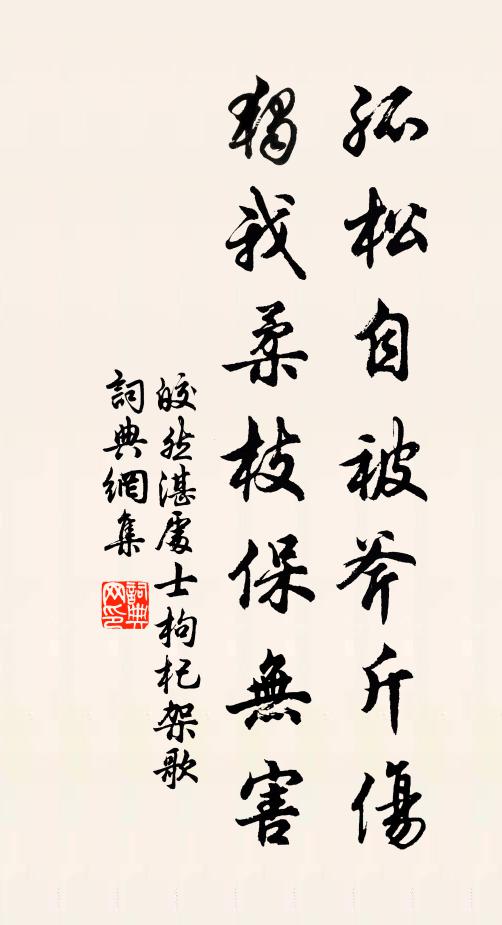 孤松自被斧斤傷
獨我柔枝保無害
皎然湛處士枸杞架歌
詞典網集
詞典网印